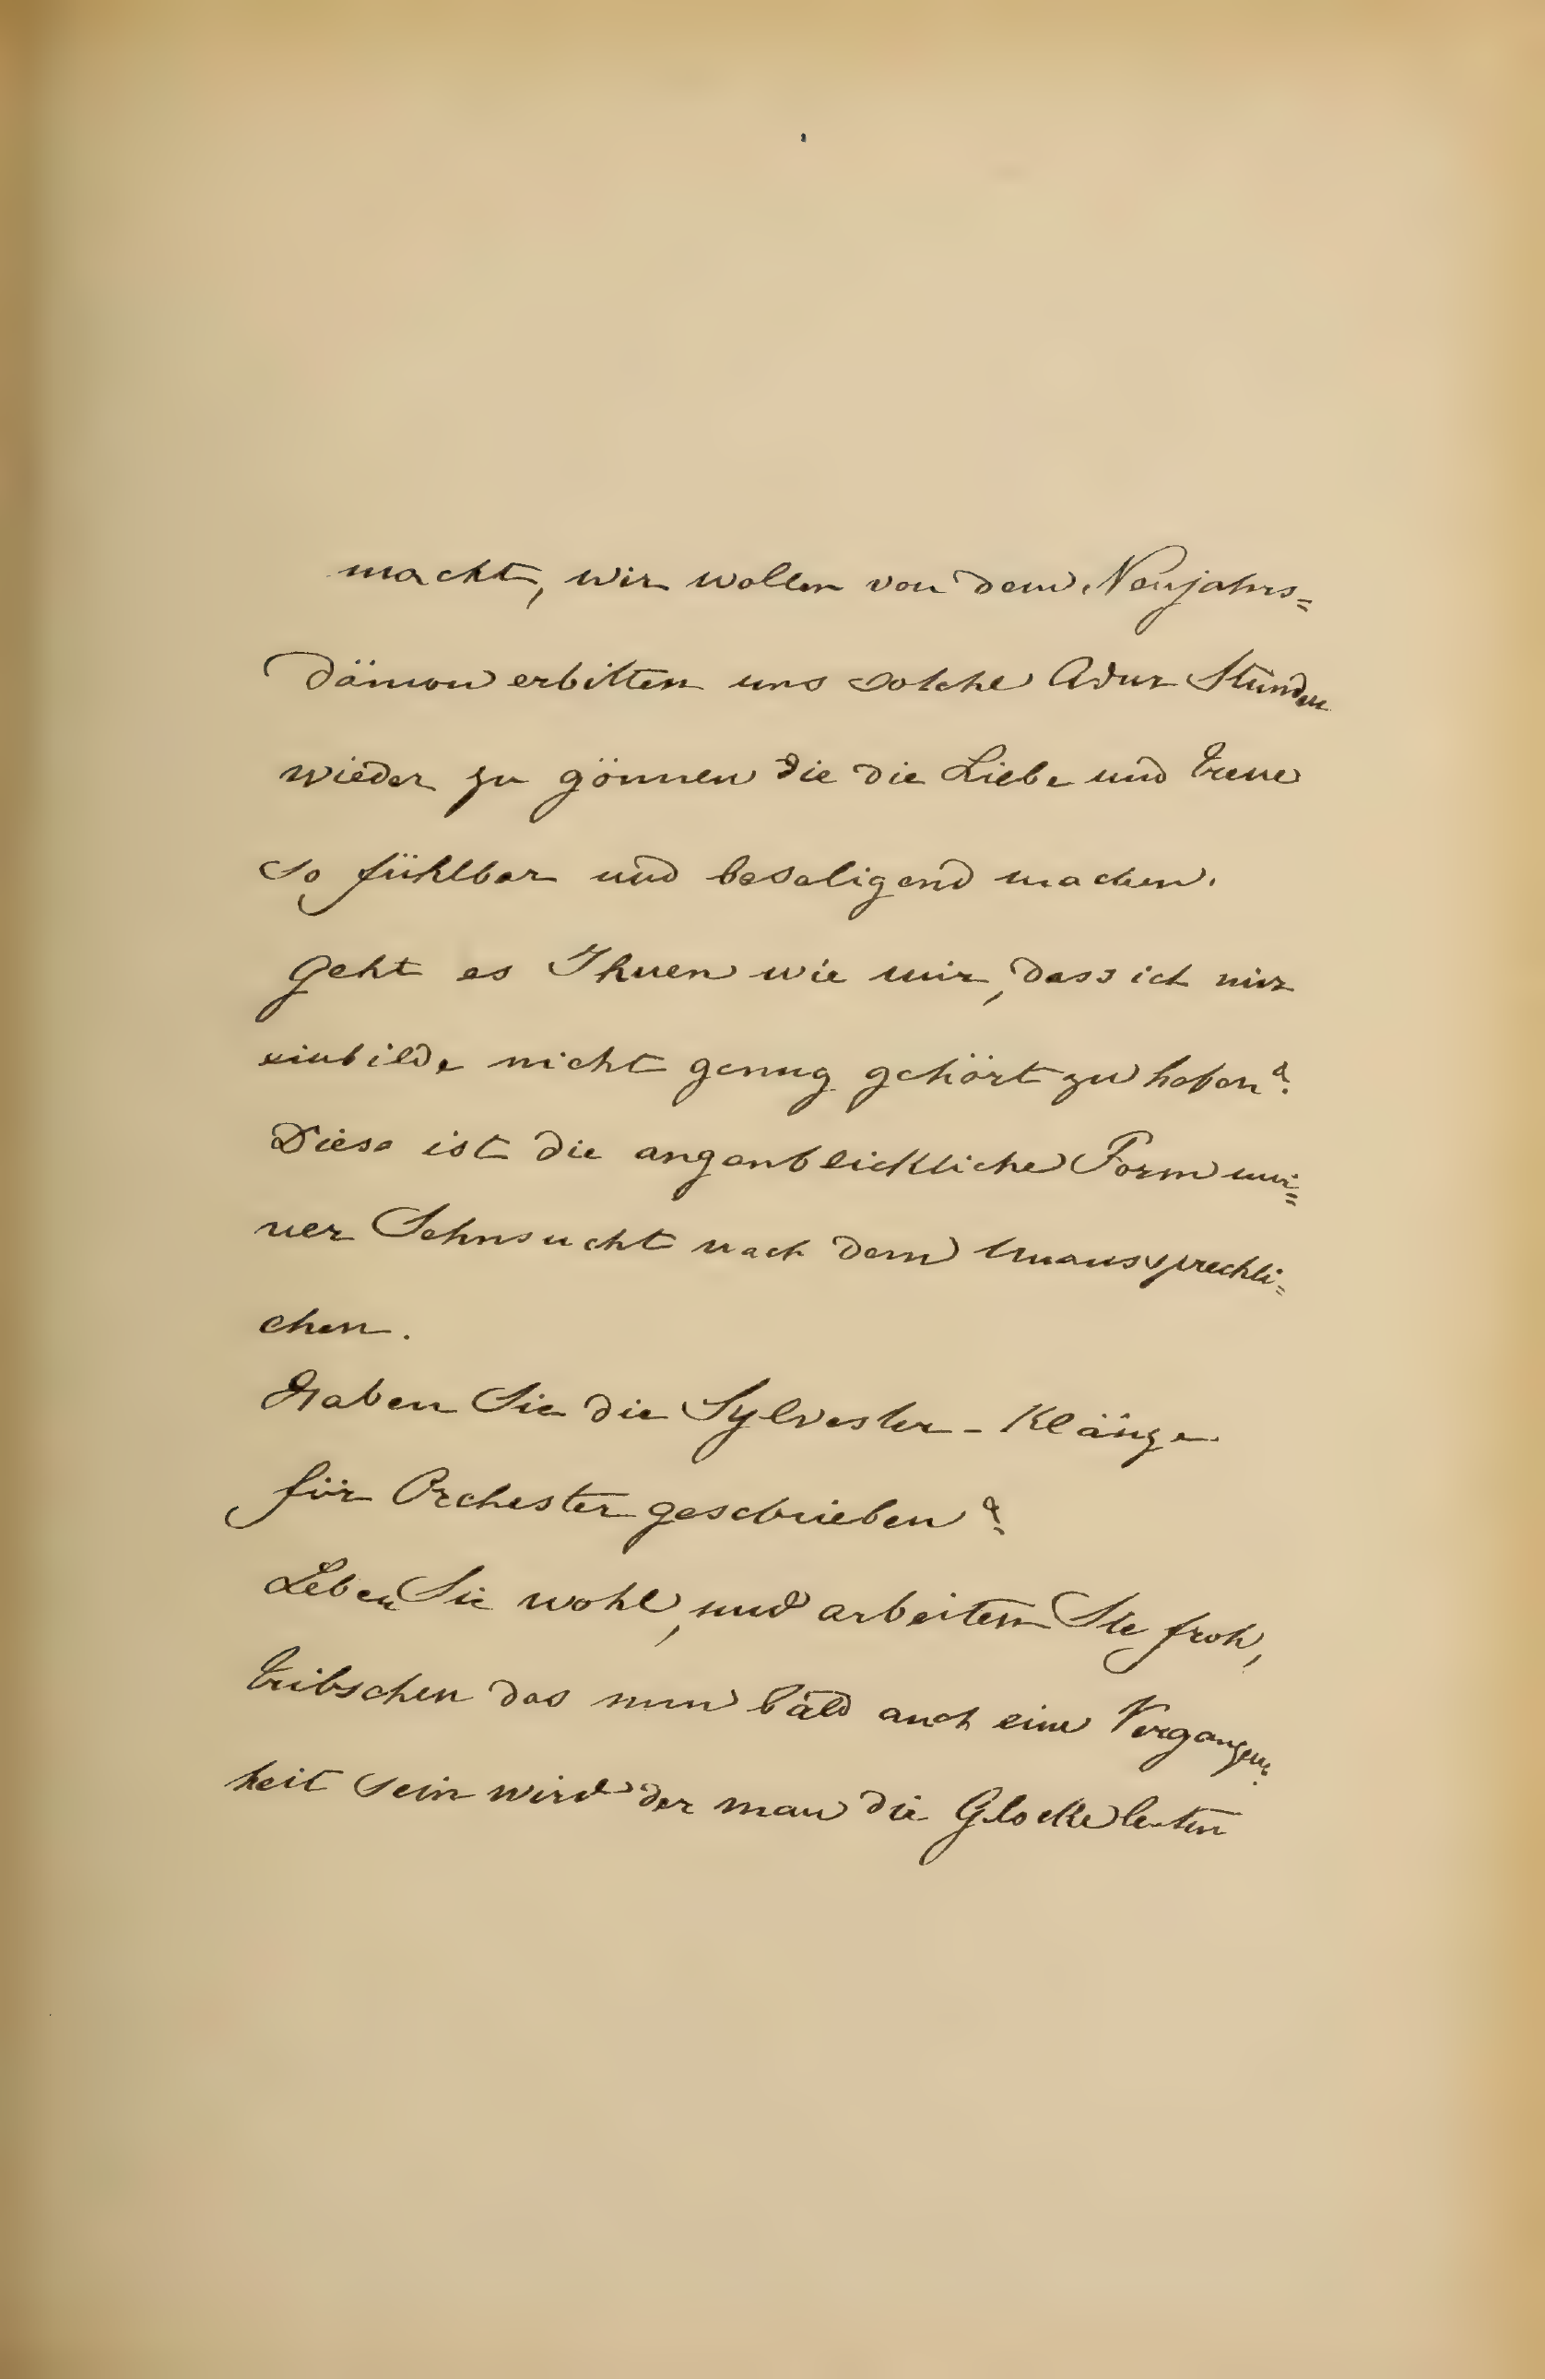 macht, wir wollen von dem Neujahrs=
dämon erbitten uns solche Adur Stunden
wieder zu gönnen die die Liebe und Treue
so fühlbar und beseligend machen.
Geht es Ihnen wie mir, dass ich mir
einbilde nicht genug gehört zu haben?
Diese ist die augenblickliche Form mei=
ner Sehnsucht nach dem Unaussprechli=
chen.
Haben Sie die Sylvester-Klänge
für Orchester geschrieben?
Leben Sie wohl, und arbeiten Sie froh,
Tribschen das nun bald auch eine Vergangen=
heit sein wird der man die Glocke leuten